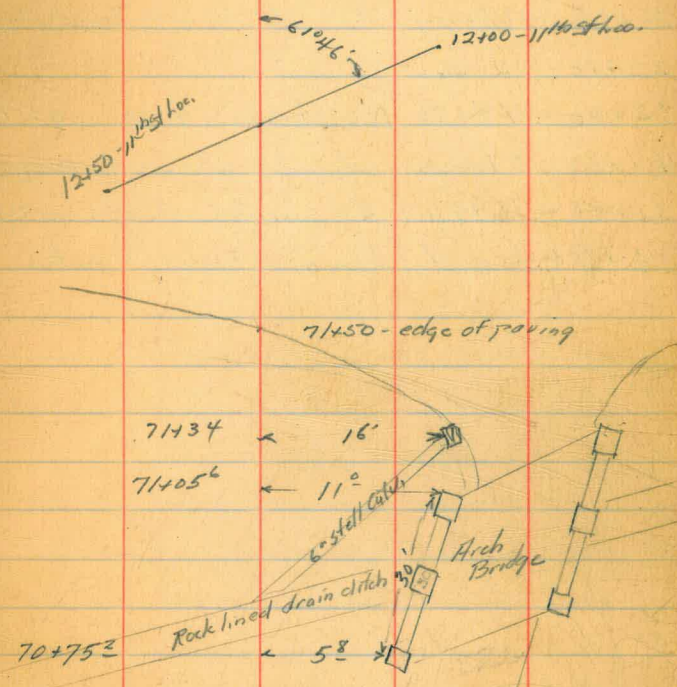 61°46'
12+00 - 11th St Loc.
12+50 - 11th St Loc.
71+50 - edge of paving
71+34 16'
71+05⁶ 11⁰
6" Steel Culv.
30'
Arch
Bridge
Rock lined drain ditch
70+75² 5⁸